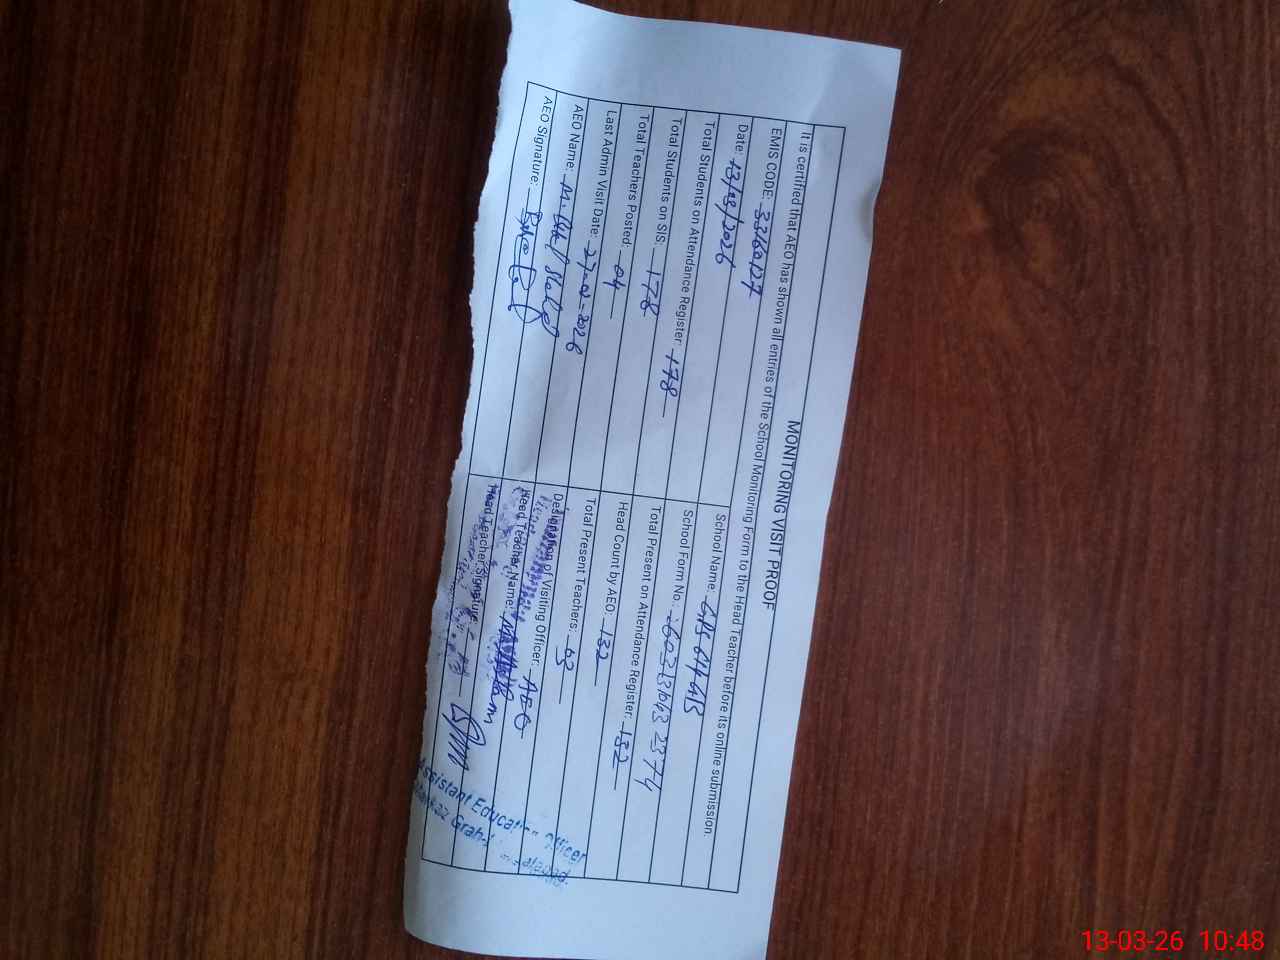 MONITORING VISIT PROOF
It is certified that AEO has shown all entries of the School Monitoring Form to the Head Teacher before its online submission.
EMIS CODE: 33160127
School Name: GPS 614 GB
Date: 13/03/2026
School Form No.:
Total Students on Attendance Register: 178
Total Present on Attendance Register: 132
Total Students on SIS: 178
Head Count by AEO: 132
Total Teachers Posted: 04
Total Present Teachers: 03
Last Admin Visit Date: 27-02-2026
Designation of Visiting Officer: AEO
AEO Name: M.
Head Teacher Name:
AEO Signature:
Head Teacher Signature:
Assistant Education Officer
Markaz
13-03-26 10:48